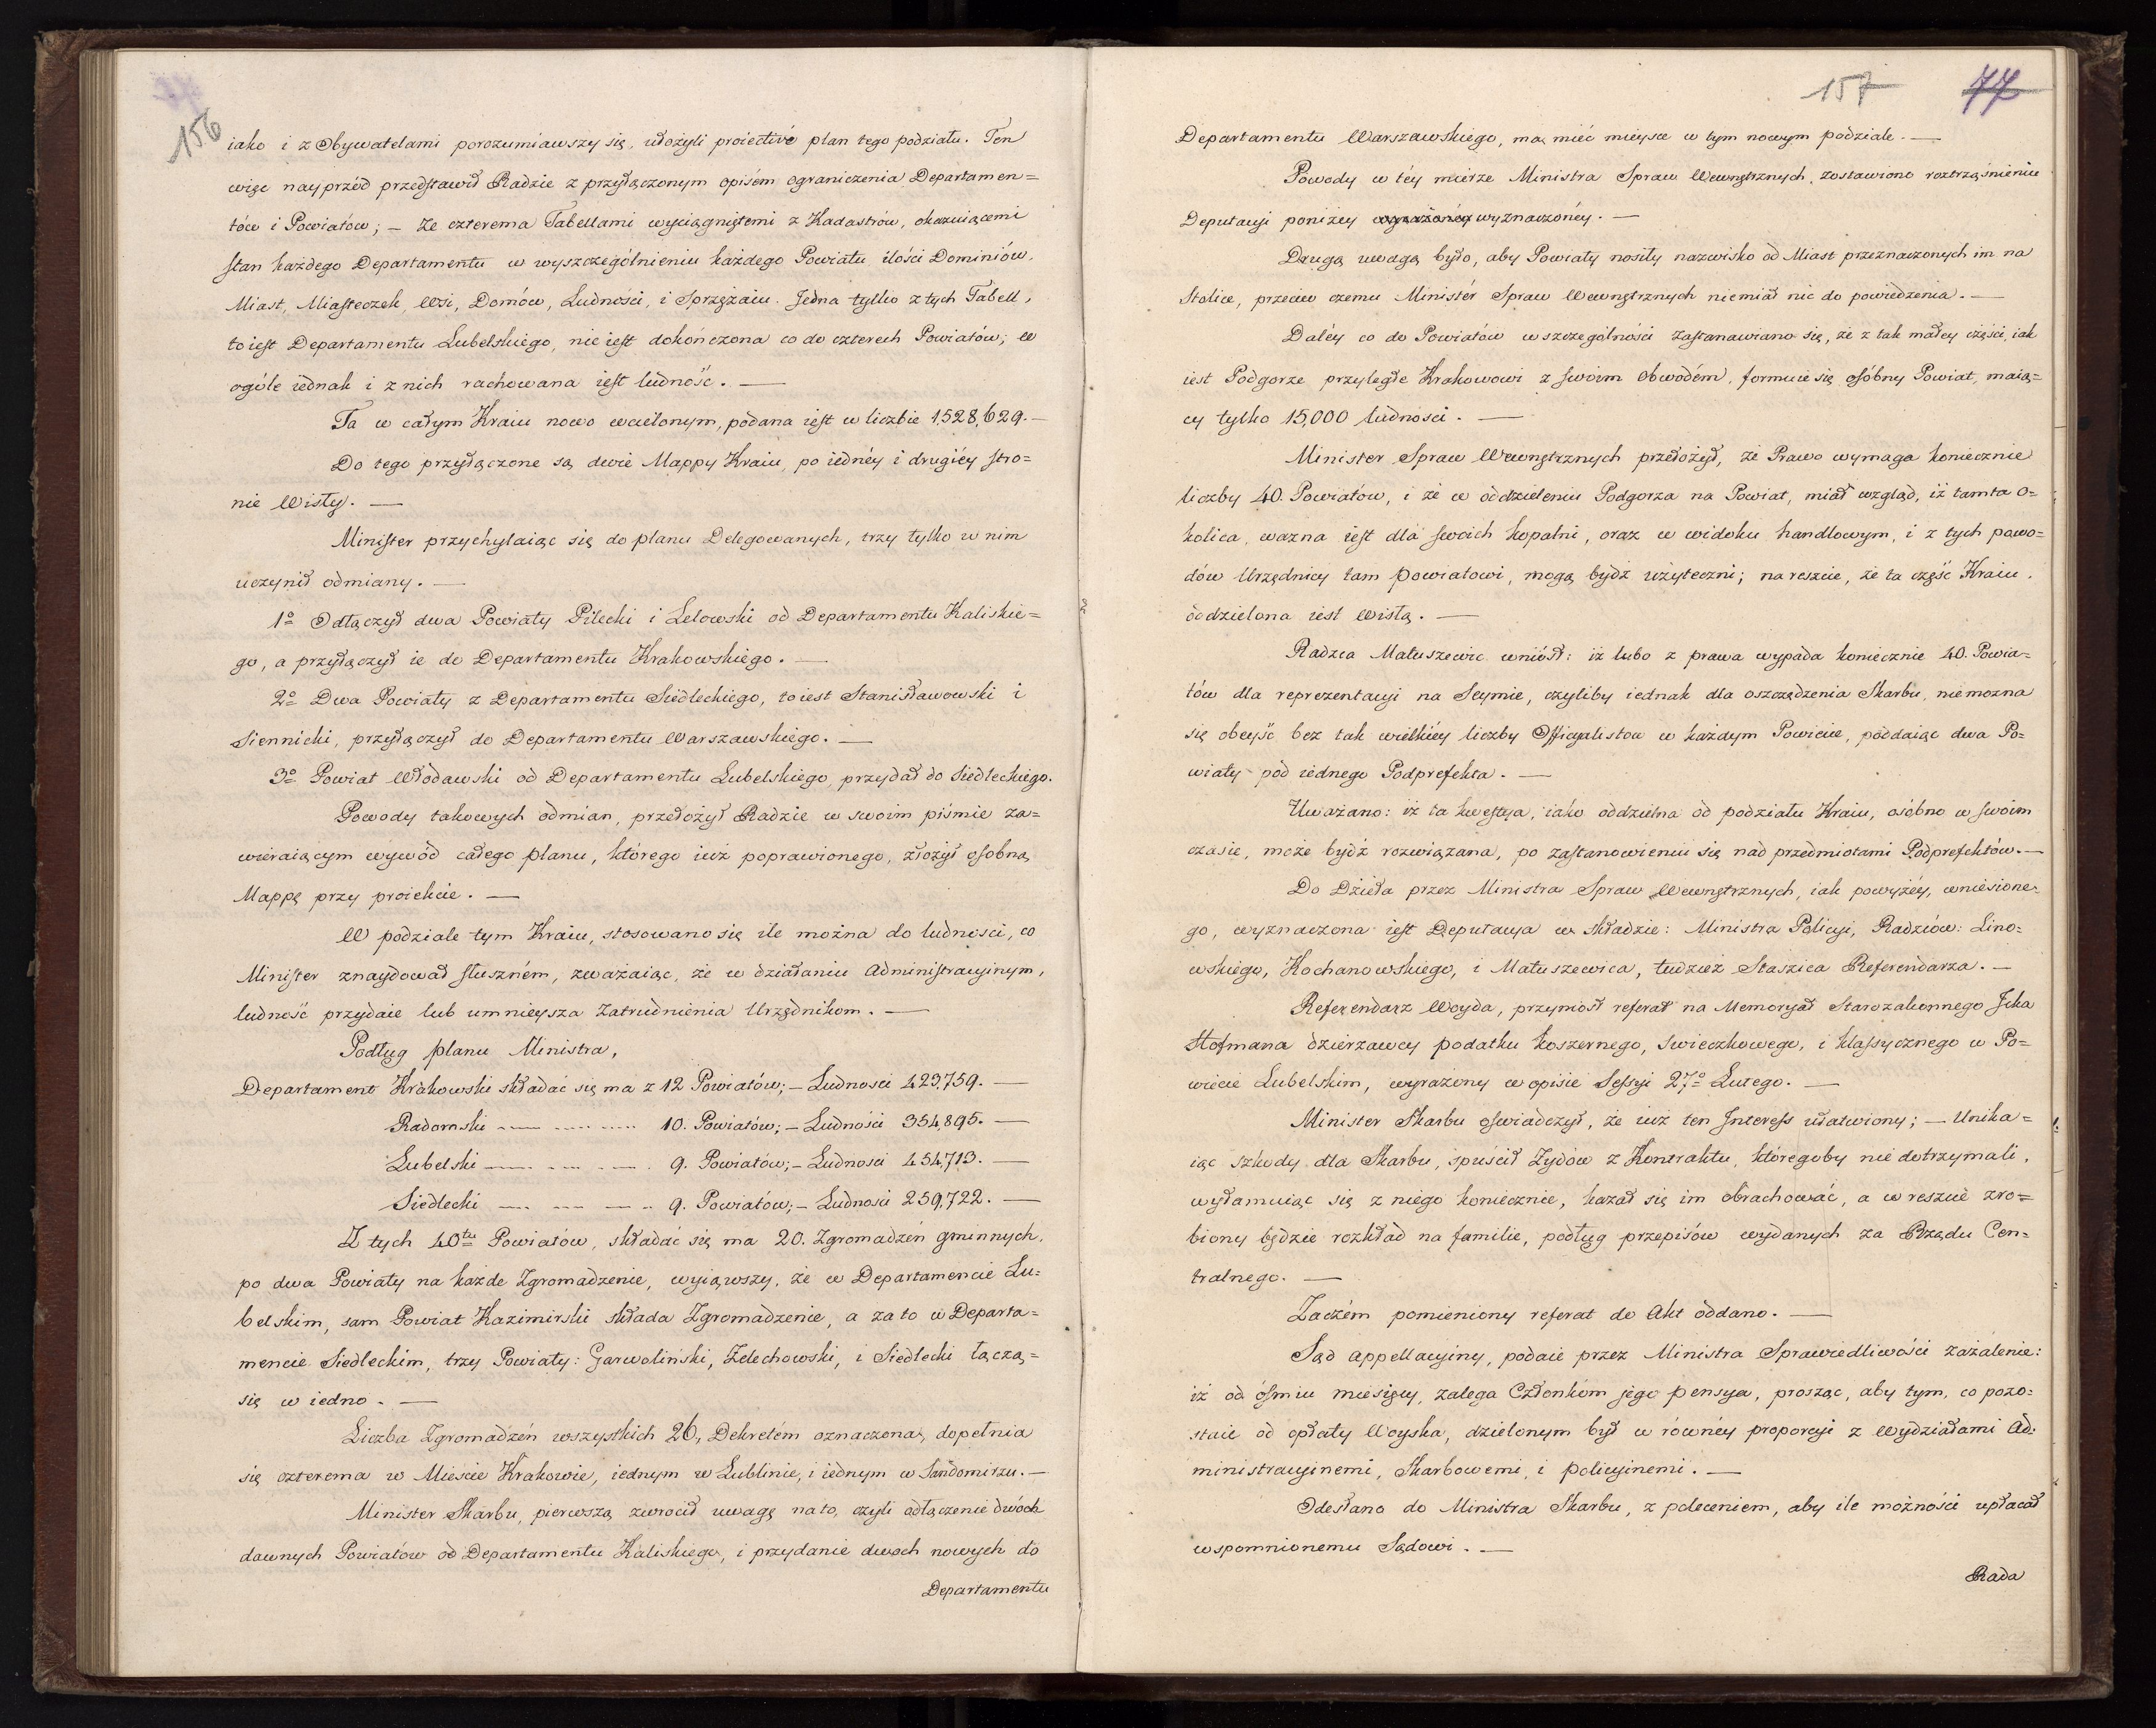 156
iako i z Obywatelami porozumiawszy się, ułożyli proiective plan tego podziału. Ten
więc nayprzód przedstawił Radzie z przyłączonym opisem ograniczenia Departamen=
tów i Powiatów; – Ze czterema Tabellami wyciągniętemi z Kadastrów, okazuiącemi
stan każdego Departamentu w wyszczególnieniu każdego Powiatu ilości Dominiów,
Miast, Miasteczek, Wsi, Domów, Ludności, i Sprzężaiu. Jedna tylko z tych Tabell,
to iest Departamentu Lubelskiego, nie iest dokończona co do czterech Powiatów; w
ogóle iednak i z nich rachowana iest ludność. —
Ta w całym Kraiu nowo wcielonym, podana iest w liczbie 1,528,629. —
Do tego przyłączone są dwie Mappy Kraiu, po iednéy i drugiéy stro=
nie Wisły. —
Minister przychylaiąc się do planu Delegowanych, trzy tylko w nim
uczynił odmiany. —
1º Odłączył dwa Powiaty Pilecki i Lelowski od Departamentu Kaliskie=
go, a przyłączył ie do Departamentu Krakowskiego. —
2º Dwa Powiaty z Departamentu Siedleckiego, to iest Stanisławowski i
Siennicki, przyłączył do Departamentu Warszawskiego. —
3º Powiat Włodawski od Departamentu Lubelskiego, przydał do Siedleckiego.
Powody takowych odmian, przełożył Radzie w swoim piśmie za=
wieraiącym wywód całego planu, którego iuż poprawionego, złożył osobną
Mappę przy proiekcie. —
W podziale tym Kraiu, stosowano się ile można do ludności, co
Minister znaydował słuszném, zważaiąc, że w działaniu Administracyinym,
ludność przydaie lub umnieysza zatrudnienia Urzędnikom. —
Podług planu Ministra,
Departament Krakowski składać się ma z 12 Powiatów; – Ludności 423,759. —
Radomski — — 10. Powiatów; – Ludności 354,895. —
Lubelski — — 9. Powiatów; – Ludności 454,713. —
Siedlecki — — 9. Powiatów; – Ludności 259,722. —
Z tych 40tu Powiatów, składać się ma 20. Zgromadzeń gminnych,
po dwa Powiaty na każde Zgromadzenie, wyiąwszy, że w Departamencie Lu=
belskim, sam Powiat Kazimirski składa Zgromadzenie, a za to w Departa=
mencie Siedleckim, trzy Powiaty: Garwoliński, Żelechowski, i Siedlecki łączą=
się w iedno. —
Liczba Zgromadzeń wszystkich 26, Dekretém oznaczona, dopełnia
się czterema w Mieście Krakowie, iednym w Lublinie, i iednym w Sandomirzu. —
Minister Skarbu, pierwszą zwrócił uwagę na to, czyli odłączenie dwóch
dawnych Powiatów od Departamentu Kaliskiego, i przydanie dwóch nowych do
Departamentu
157 77
Departamentu Warszawskiego, ma mieć mieysce w tym nowym podziale. —
Powody w téy mierze Ministra Spraw Wewnętrznych, zostawiono roztrząśnieniu
Deputacyi poniżey wyrażonéy wyznaczonéy. —
Drugą uwagą było, aby Powiaty nosiły nazwisko od Miast przeznaczonych im na
Stolice, przeciw czemu Ministér Spraw Wewnętrznych niemiał nic do powiedzenia. —
Daléy co do Powiatów w szczególności zastanawiano się, że z tak małey części, iak
iest Podgorze przyległe Krakowowi z swoim Obwodém, formuie się osóbny Powiat, maią=
cy tylko 15,000 ludności. —
Minister Spraw Wewnętrznych przełożył, że Prawo wymaga koniecznie
liczby 40. Powiatów, i że w oddzieleniu Podgorza na Powiat, miał wzgląd, iż tamta o=
kolica, ważna iest dla swoich kopalni, oraz w widoku handlowym, i z tych powo=
dów Urzędnicy tam Powiatowi, mogą bydź użyteczni; nareszcie, że ta część Kraiu,
oddzielona iest Wisłą. —
Radzca Matuszewic wniósł: iż lubo z prawa wypada koniecznie 40. Powia=
tów dla reprezentacyi na Seymie, czyliby iednak dla oszczędzenia Skarbu, niemożna
się obeyść bez tak wielkiéy liczby Officyalistow w każdym Powiecie, poddaiąc dwa Po=
wiaty pod iednego Podprefekta. —
Uważano: iż ta kwestya, iako oddzielna od podziału Kraiu, osóbno w swoim
czasie, może bydź rozwiązana, po zastanowieniu się nad przedmiotami Podprefektów. —
Do Dzieła przez Ministra Spraw Wewnętrznych, iak powyżéy, wniesione=
go, wyznaczona iest Deputacya w składzie: Ministra Policyi, Radzców: Lino=
wskiego, Kochanowskiego, i Matuszewica, tudzież Staszica Referendarza. —
Referendarz Woyda, przyniosł referat na Memoryał Starozakonnego Icka
Hofmana dzierzawcy podatku koszernego, swieczkowego, i klassycznego w Po=
wiecie Lubelskim, wyrażony w opisie Sessyi 27º Lutego. —
Minister Skarbu oświadczył, że iuż ten Interess ułatwiony; – Unika=
iąc szkody dla Skarbu, spuścił Żydów z Kontraktu, któregoby nie dotrzymali,
wyłamuiąc się z niego koniecznie, kazał się im obrachować, a w reszcie zro=
biony będzie rozkład na familie, podług przepisów wydanych za Rządu Cen=
tralnego. —
Zaczém pomieniony referat do Akt oddano. —
Sąd appellacyiny, podaie przez Ministra Sprawiedliwości zażalenie:
iż od ósmiu miesięcy, zalega Członkom jego pensya, prosząc, aby tym, co pozo=
staie od opłaty Woyska, dzielonym był w równéy proporcyi z Wydziałami Ad=
ministracyinemi, Skarbowemi, i policyinemi. —
Odesłano do Ministra Skarbu, z poleceniem, aby ile możności upłacał
wspomnionemu Sądowi. —
Rada